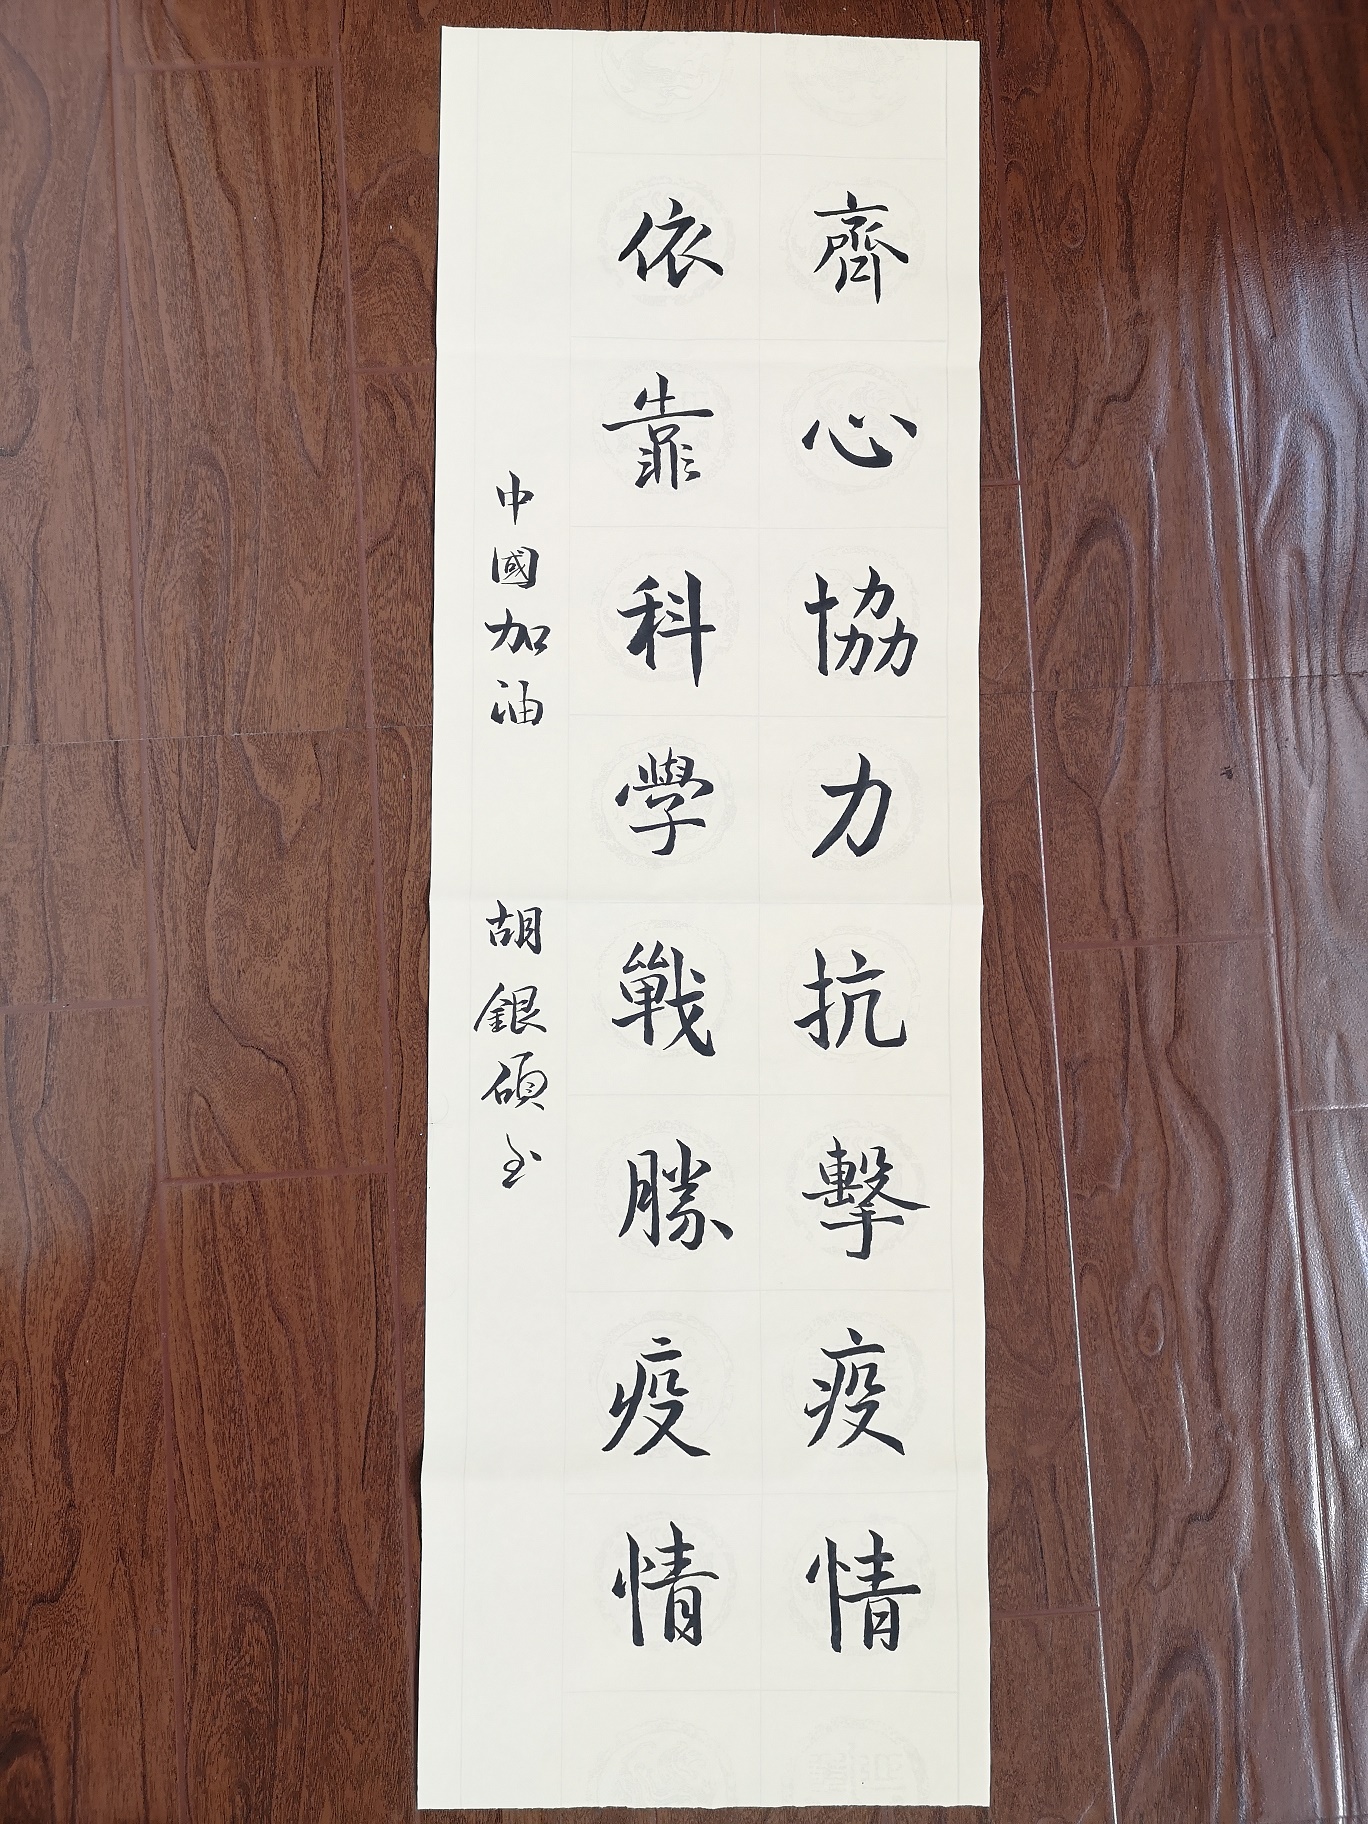 齊心協力抗擊疫情
依靠科學戰勝疫情
中國加油 胡銀碩书